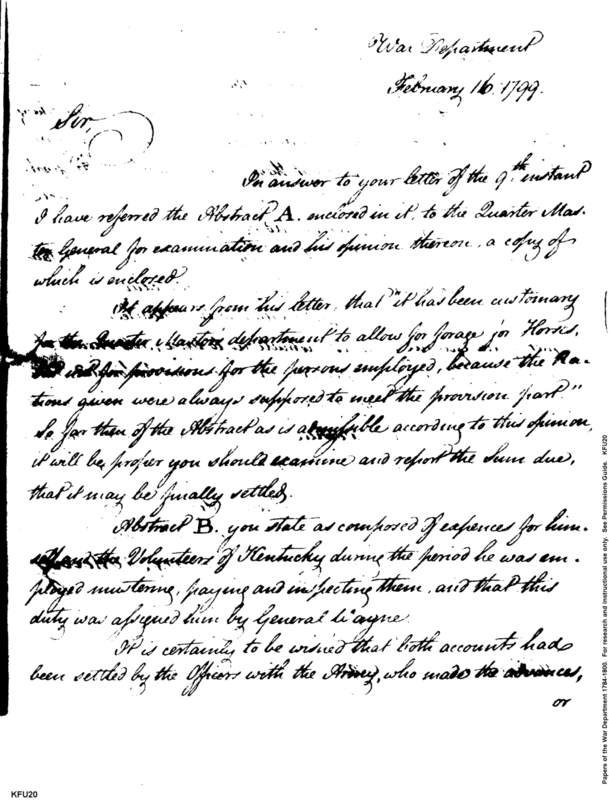 War Department
February 16. 1799.
Sir,
In answer to your letter of the 9th instant
I have referred the Abstract A. enclosed in it, to the Quarter Mas-
ter General for examination and his opinion thereon, a copy of
which is enclosed.
It appears from his letter, that "it has been customary
in the Quarter Masters department to allow for forage for Horses,
but not for provisions for the persons employed, because the Ra-
tions given were always supposed to meet the provision part"
So far then of the Abstract as is admissible according to this opinion,
it will be proper you should examine and report the sum due,
that it may be finally settled.
Abstract B. you state as composed of expences for him-
self and the Volunteers of Kentucky during the period he was em-
ployed mustering, paying and inspecting them, and that this
duty was assigned him by General Wayne.
It is certainly to be wished that both accounts had
been settled by the Officers with the Army, who made the advances,
or
KFU20
Papers of the War Department 1784-1800. For research and instructional use only. See Permissions Guide. KFU20